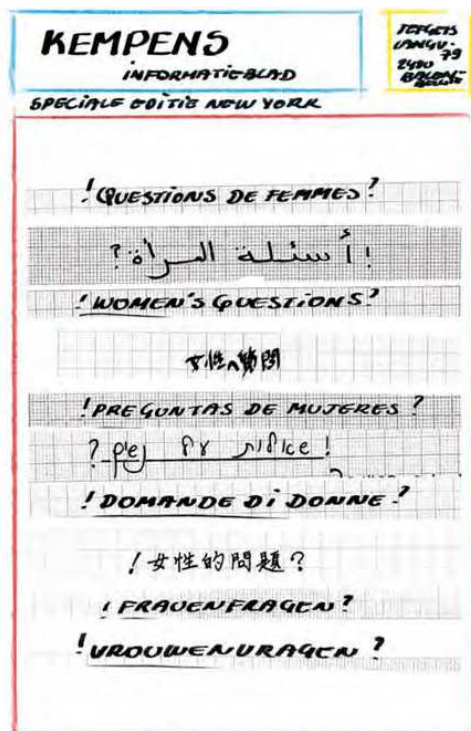 KEMPENS
INFORMATIEBLAD
SPECIALE EDITIE NEW YORK
79
! QUESTIONS DE FEMMES ?
! أسئلة المرأة ?
! WOMEN'S QUESTIONS ?
女性へ質問
! PREGUNTAS DE MUJERES ?
! שאלות של נשים ?
! DOMANDE DI DONNE ?
! 女性的問題 ?
! FRAUENFRAGEN ?
! VROUWENVRAGEN ?